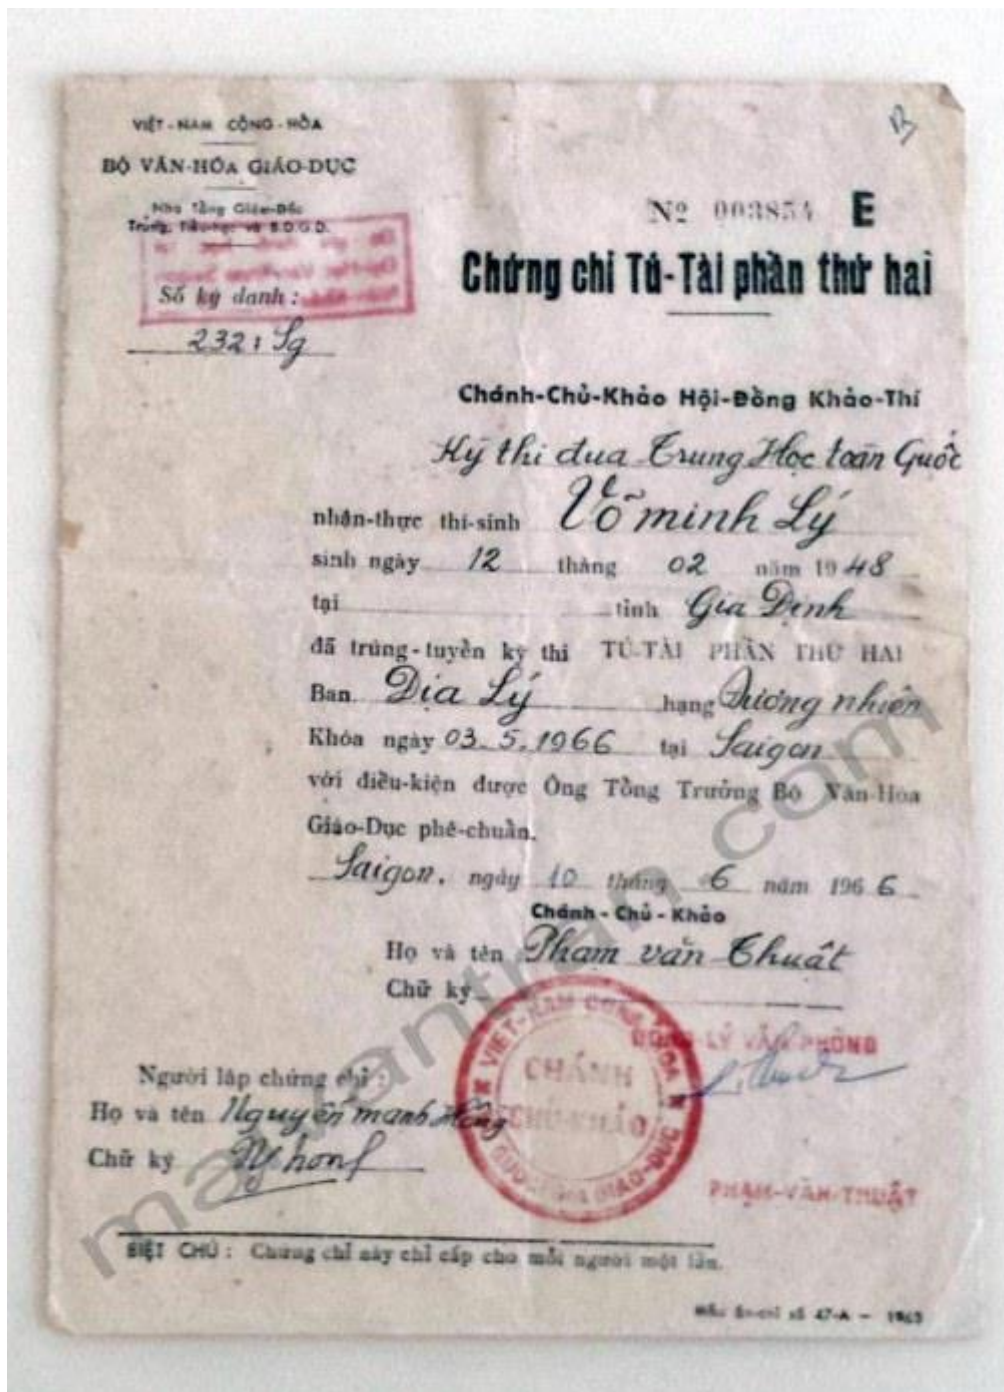 VIỆT-NAM CỘNG-HÒA
BỘ VĂN-HÓA GIÁO-DỤC
Nha Tổng Giám-Đốc
Trung, Tiểu-học và B.D.G.D.
Số ký danh :
232: Sg
B
Nº 003854 E
Chứng chỉ Tú-Tài phần thứ hai
Chánh-Chủ-Khảo Hội-Đồng Khảo-Thí
Kỳ thi đua Trung Học toàn Quốc
nhận-thực thí-sinh Võ minh Lý
sinh ngày 12 tháng 02 năm 1948
tại tỉnh Gia Định
đã trúng-tuyển kỳ thi TÚ-TÀI PHẦN THỨ HAI
Ban Địa Lý hạng Đương nhiên
Khóa ngày 03.5.1966 tại Saigon
với điều-kiện được Ông Tổng Trưởng Bộ Văn-Hóa
Giáo-Dục phê-chuẩn.
Saigon, ngày 10 tháng 6 năm 1966
Chánh-Chủ-Khảo
Họ và tên Phạm văn Thuật
Chữ ký
VIỆT-NAM CỘNG HÒA
CHÁNH
CHỦ-KHẢO
GIÁO-DỤC
ĐỔNG-LÝ VĂN-PHÒNG
PHẠM-VĂN-THUẬT
Người lập chứng chỉ :
Họ và tên Nguyễn mạnh Hồng
Chữ ký
BIỆT CHÚ : Chứng chỉ này chỉ cấp cho mỗi người một lần.
Mẫu ấn-chỉ số 47-A — 1965
mayvantran.com